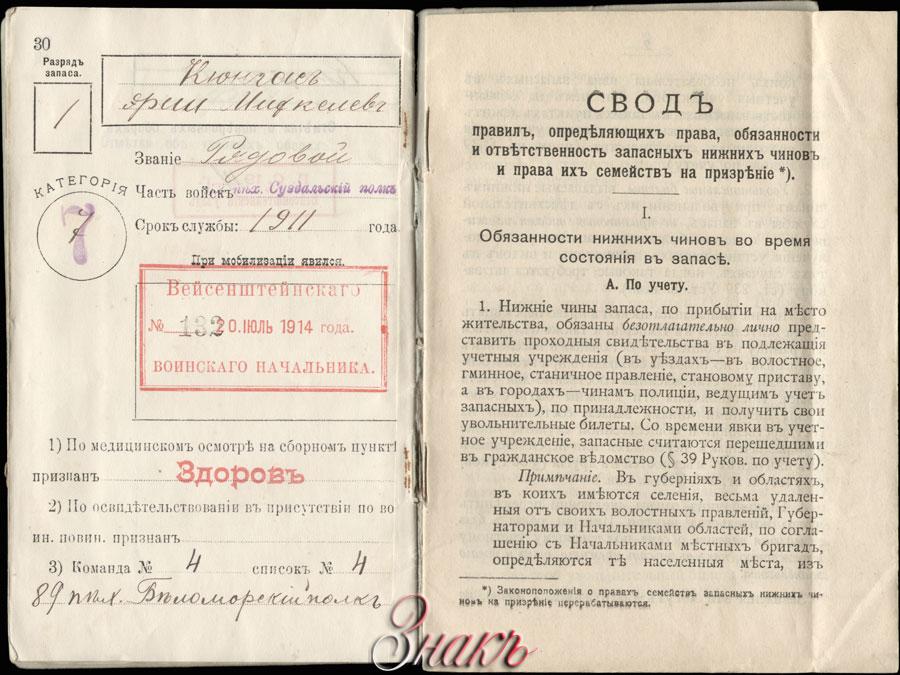 30
Разрядъ
запаса.
1
Кюнгасъ
КАТЕГОРІЯ
7
Званіе Рядовой
Часть войскъ пѣх. Суздальскій полкъ
Срокъ службы: 1911 года.
При мобилизаціи явился.
Вейсенштейнскаго
№ 132 20 ІЮЛЬ 1914 года.
ВОИНСКАГО НАЧАЛЬНИКА.
1) По медицинскомъ осмотрѣ на сборномъ пунктѣ
признанъ Здоровъ
2) По освидѣтельствованіи въ присутствіи по во
ин. повин. признанъ
3) Команда № 4 списокъ № 4
89 пѣх. Бѣломорскій полкъ
СВОДЪ
правилъ, опредѣляющихъ права, обязанности
и отвѣтственность запасныхъ нижнихъ чиновъ
и права ихъ семействъ на призрѣніе *).
I.
Обязанности нижнихъ чиновъ во время
состоянія въ запасѣ.
А. По учету.
1. Нижніе чины запаса, по прибытіи на мѣсто
жительства, обязаны безотлагательно лично пред-
ставить проходныя свидѣтельства въ подлежащія
учетныя учрежденія (въ уѣздахъ—въ волостное,
гминное, станичное правленіе, становому приставу,
а въ городахъ—чинамъ полиціи, ведущимъ учетъ
запасныхъ), по принадлежности, и получить свои
увольнительные билеты. Со времени явки въ учет-
ное учрежденіе, запасные считаются перешедшими
въ гражданское вѣдомство (§ 39 Руков. по учету).
Примѣчаніе. Въ губерніяхъ и областяхъ,
въ коихъ имѣются селенія, весьма удален-
ныя отъ своихъ волостныхъ правленій, Губер-
наторами и Начальниками областей, по согла-
шенію съ Начальниками мѣстныхъ бригадъ,
опредѣляются тѣ населенныя мѣста, изъ
*) Законоположенія о правахъ семействъ запасныхъ нижнихъ чи-
новъ на призрѣніе перерабатываются.
Знакъ